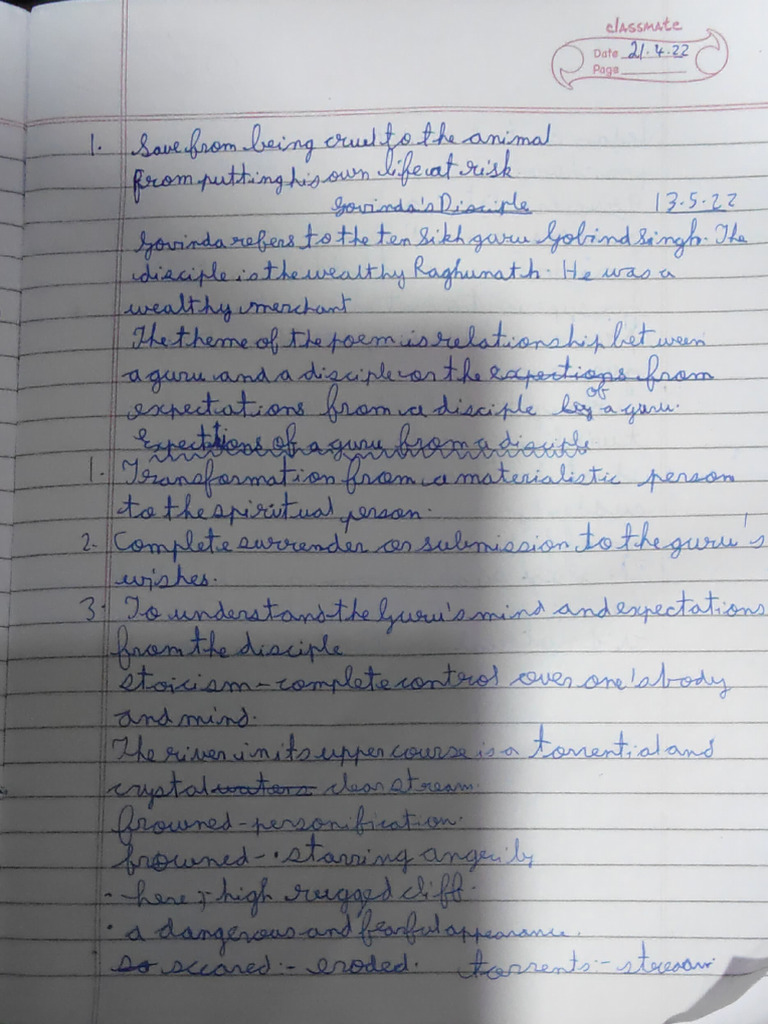 classmate
Date 21.4.22
Page
1. Save from being cruel to the animal
from putting his own life at risk
Govinda's Disciple 13.5.22
Govinda refers to the ten Sikh guru Gobind Singh. The
disciple is the wealthy Raghunath. He was a
wealthy merchant
The theme of the poem is relationship between
a guru and a disciple or the expections from
expectations from a disciple by of a guru.
Expectations of a guru from a disciple
1. Transformation from a materialistic person
to the spiritual person.
2. Complete surrender or submission to the guru's
wishes.
3. To understand the Guru's mind and expectations
from the disciple
stoicism - complete control over one's body
and mind.
The river in its upper course is a torrential and
crystal waters clear stream.
frowned - personification.
frowned - starring angerily
- here ; high rugged cliff.
• a dangerous and fearful appearance.
so sccared :- eroded. torrents :- stream